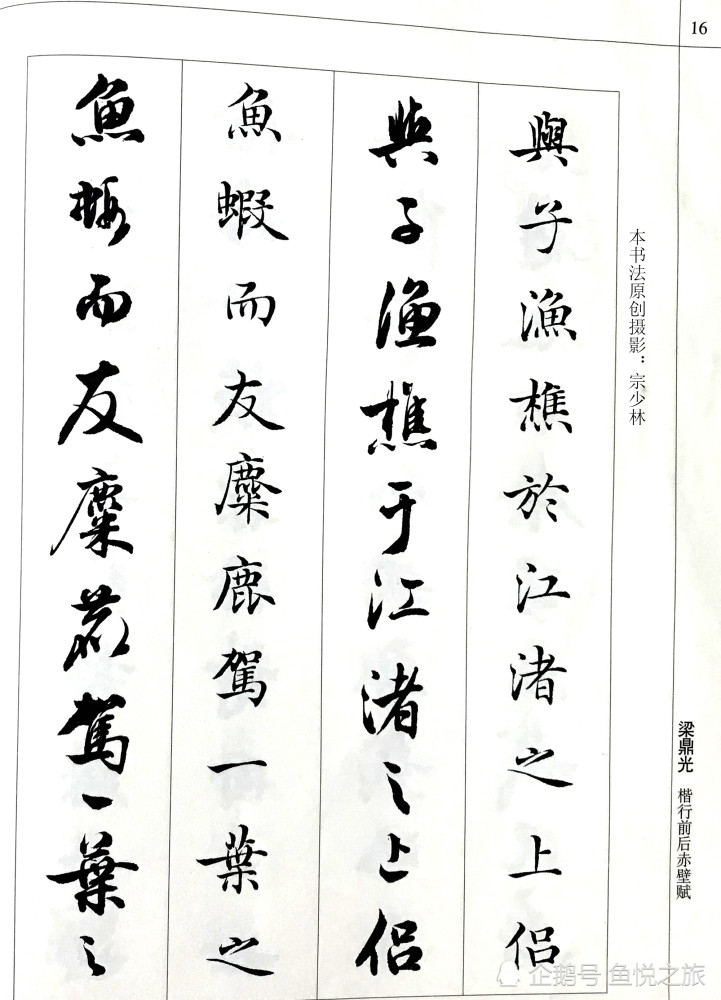 16
本书法原创摄影：宗少林
梁鼎光 楷行前后赤壁赋
與子漁樵於江渚之上侣
與子漁樵于江渚之上侣
魚蝦而友麋鹿駕一葉之
魚蝦而友麋鹿駕一葉之
企鹅号 鱼悦之旅